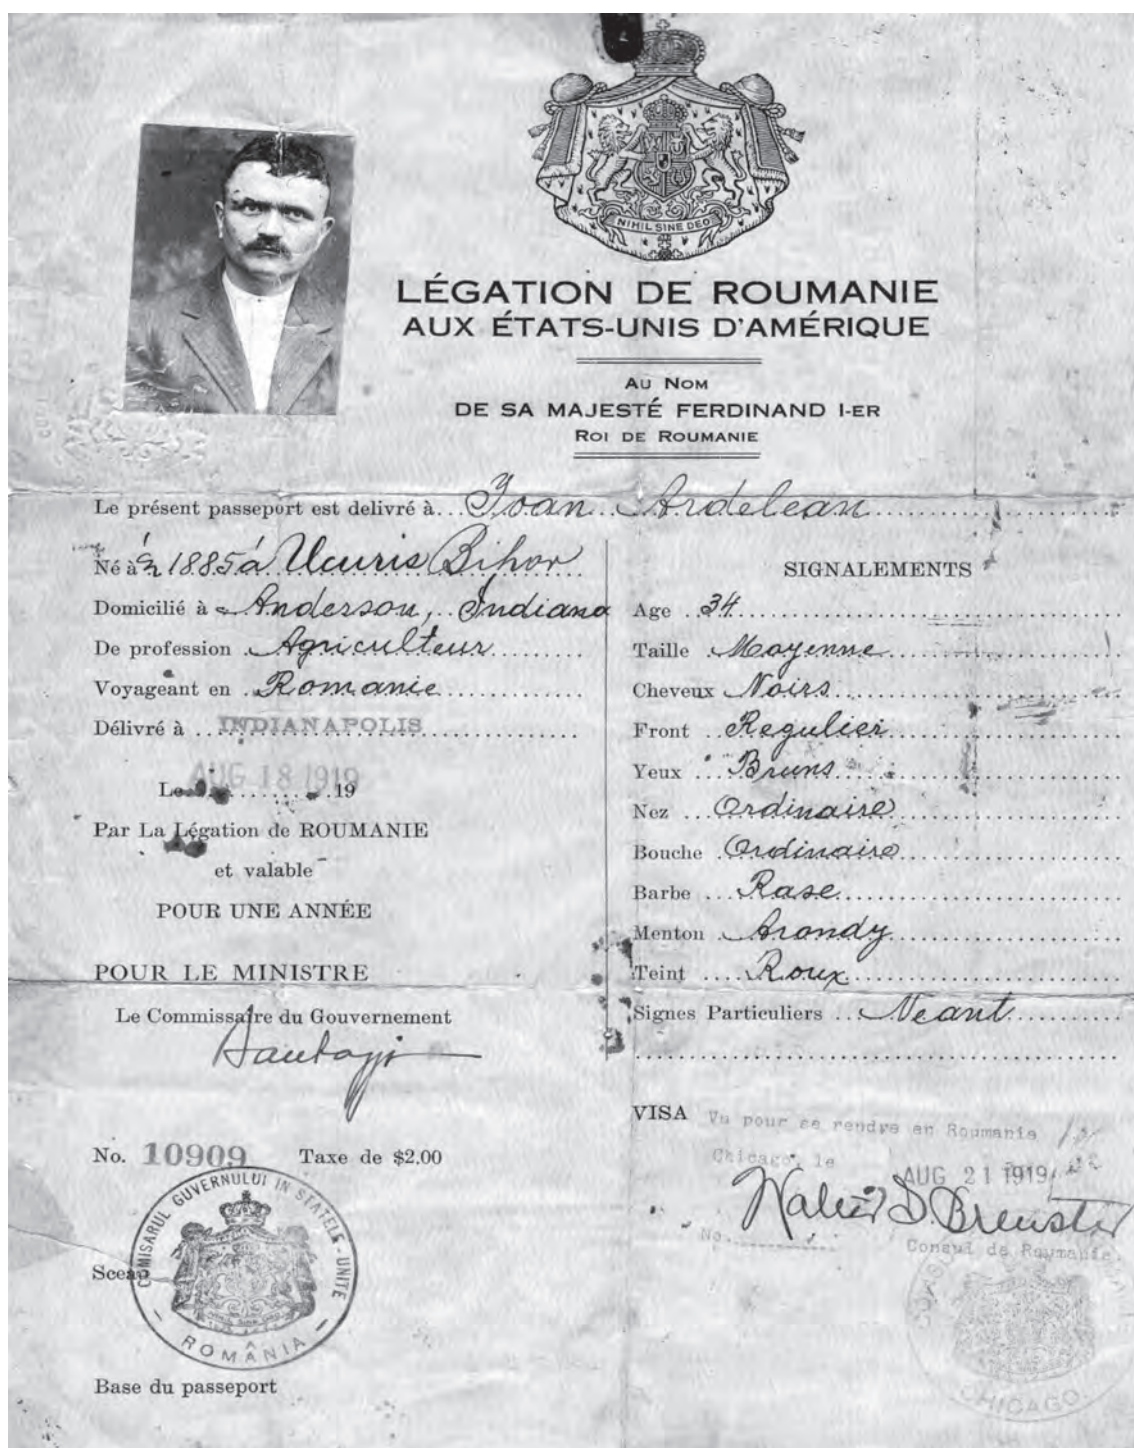 NIHIL SINE DEO
LÉGATION DE ROUMANIE
AUX ÉTATS-UNIS D'AMÉRIQUE
AU NOM
DE SA MAJESTÉ FERDINAND I-ER
ROI DE ROUMANIE
Le présent passeport est delivré à Ioan Ardelean
Né à 1885 á Ucuris Bihor
Domicilié à Anderson, Indiana
De profession Agriculteur
Voyageant en Romanie
Délivré à INDIANAPOLIS
Le AUG 18 1919 19
Par La Légation de ROUMANIE
et valable
POUR UNE ANNÉE
POUR LE MINISTRE
Le Commissaire du Gouvernement
No. 10909 Taxe de $2.00
COMISARUL GUVERNULUI IN STATELE-UNITE
ROMÂNIA
Sceau
Base du passeport
SIGNALEMENTS
Age 34
Taille Moyenne
Cheveux Noirs
Front Regulier
Yeux Bruns
Nez Ordinaire
Bouche Ordinaire
Barbe Rase
Menton Arondy
Teint Roux
Signes Particuliers Neant
VISA Vu pour se rendre en Roumanie
Chicago, le AUG 21 1919
Walter D. Brewster
No.
Consul de Roumanie.
CHICAGO